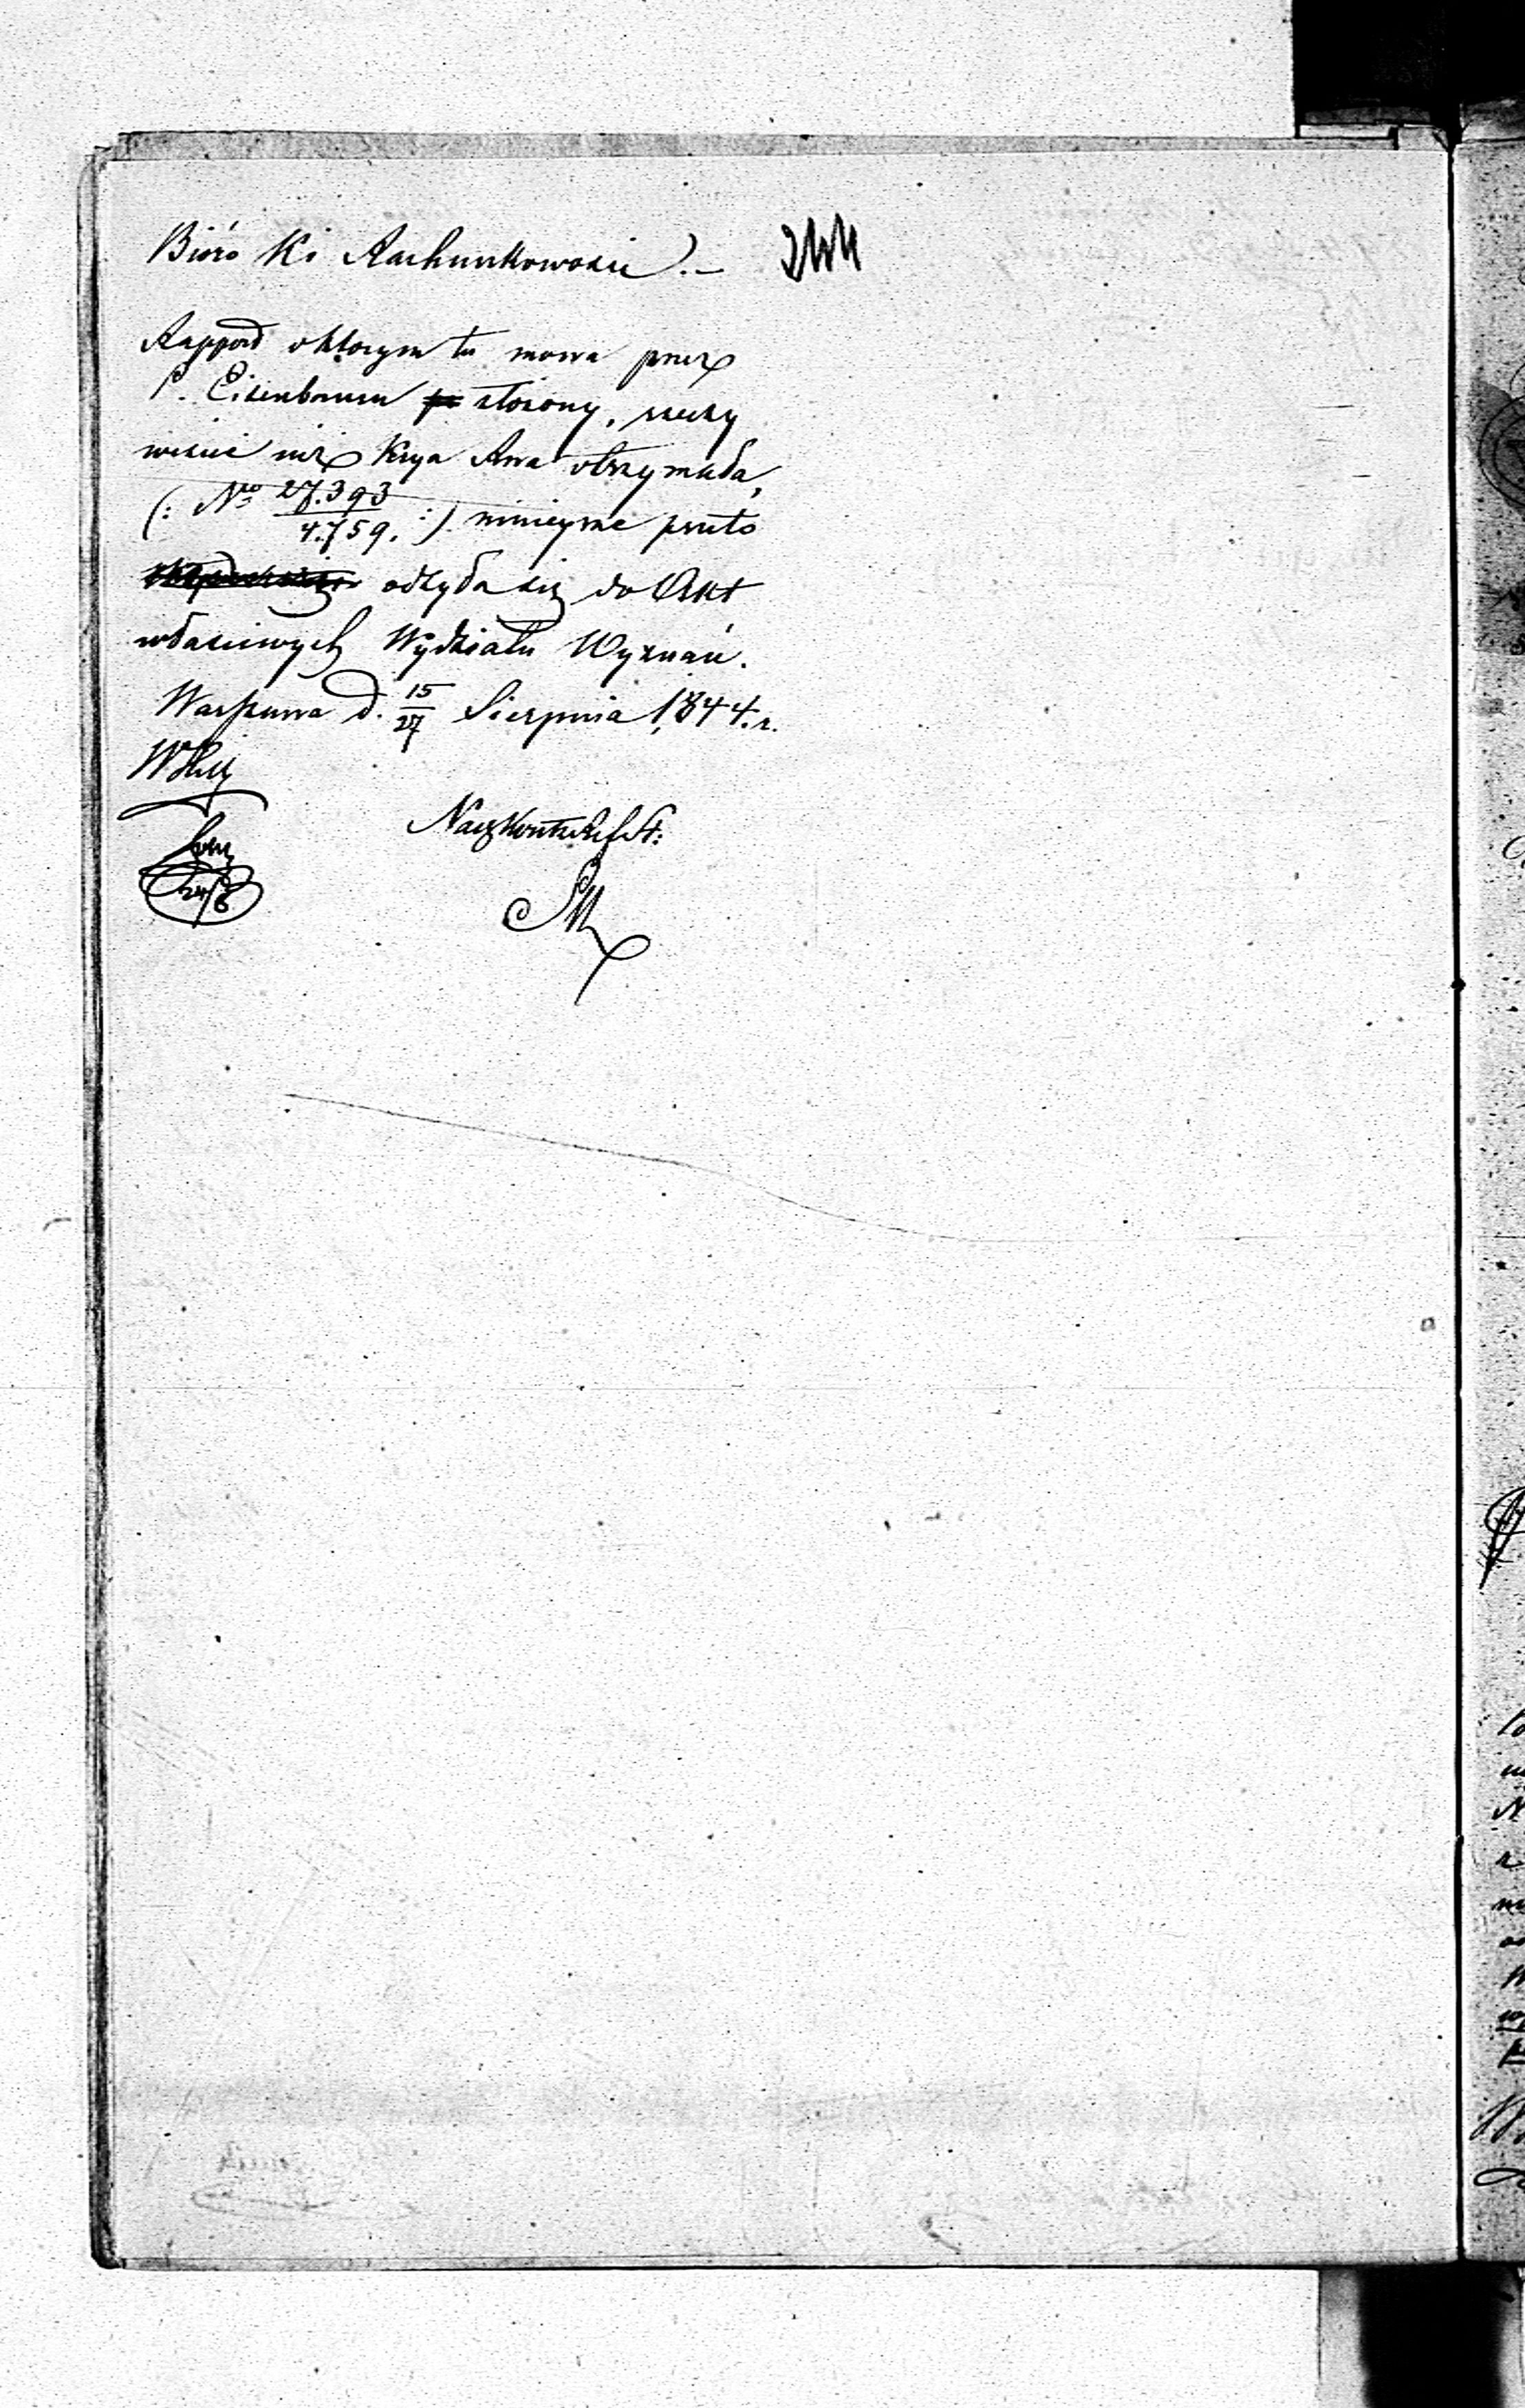 Bióro K. Rachunkowości. –
244
Rapport o którym tu mowa przez
P. Eisenbauma złożony, rzeczy
wiście już Krząa otrzymała,
(: No 27.393/4.759. :) niniejsze przeto
odsyła się do Akt
właściwych Wydziału Wyznań.
Warszawa d. 15/27 Sierpnia 1844. r.